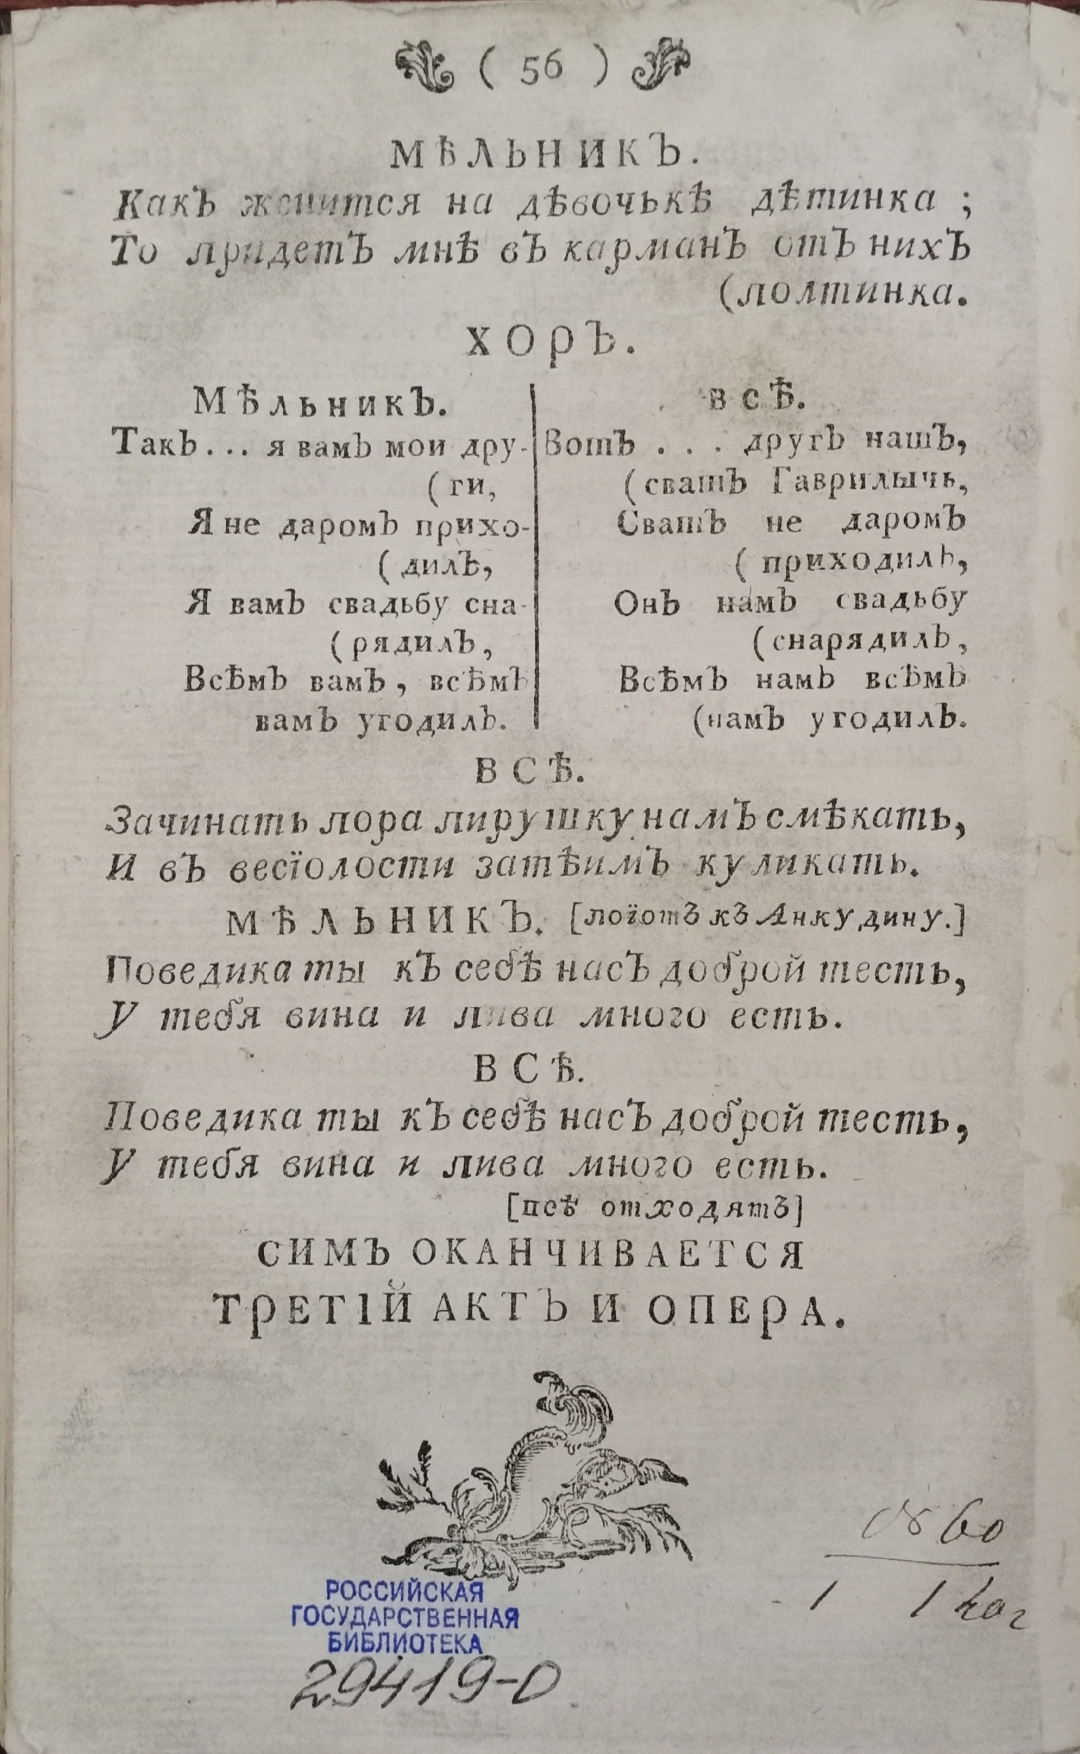 ( 56 )
МѢЛЬНИКЪ.
Какъ женится на дѣвочькѣ дѣтинка ;
То придетъ мнѣ въ карманъ отъ нихъ
(полтинка.
ХОРЪ.
Мѣльникъ.
Такъ... я вамъ мои дру-
(ги,
Я не даромъ прихо-
(дилъ,
Я вамъ свадьбу сна-
(рядилъ,
Всѣмъ вамъ, всѣмъ
вамъ угодилъ.
всѣ.
Вотъ . . . другъ нашъ,
(сватъ Гаврилычь,
Сватъ не даромъ
(приходилъ,
Онъ намъ свадьбу
(снарядилъ,
Всѣмъ намъ всѣмъ
(намъ угодилъ.
ВСѢ.
Зачинать пора пирушку намъ смѣкать,
И въ весіолости затѣимъ куликать.
МѢЛЬНИКЪ. [поіотъ къ Анкудину.]
Поведика ты къ себѣ насъ доброй тесть,
У тебя вина и пива много есть.
ВСѢ.
Поведика ты къ себѣ насъ доброй тесть,
У тебя вина и пива много есть.
[всѣ отходятъ]
СИМЪ ОКАНЧИВАЕТСЯ
ТРЕТІЙ АКТЪ И ОПЕРА.
РОССИЙСКАЯ
ГОСУДАРСТВЕННАЯ
БИБЛИОТЕКА
29419-0
60
1 1